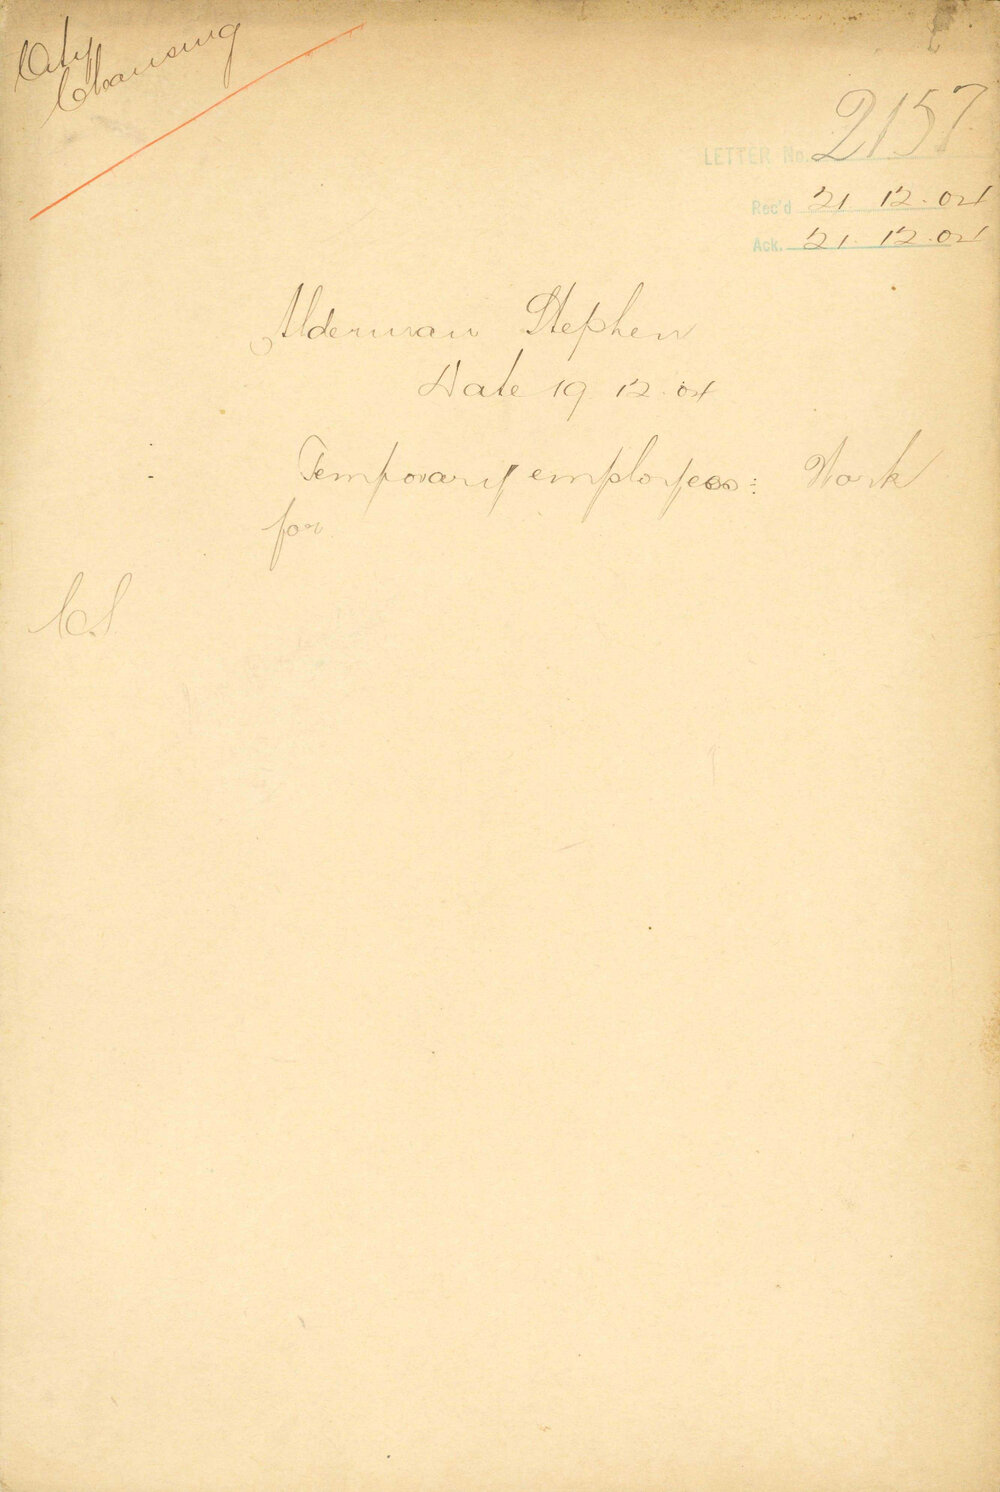 City
Cleansing
LETTER No. 2157
Rec'd 21. 12. 04
Ack. 21. 12. 04
Alderman Stephen
Date 19. 12. 04
Temporary employees: Work
for
C.S